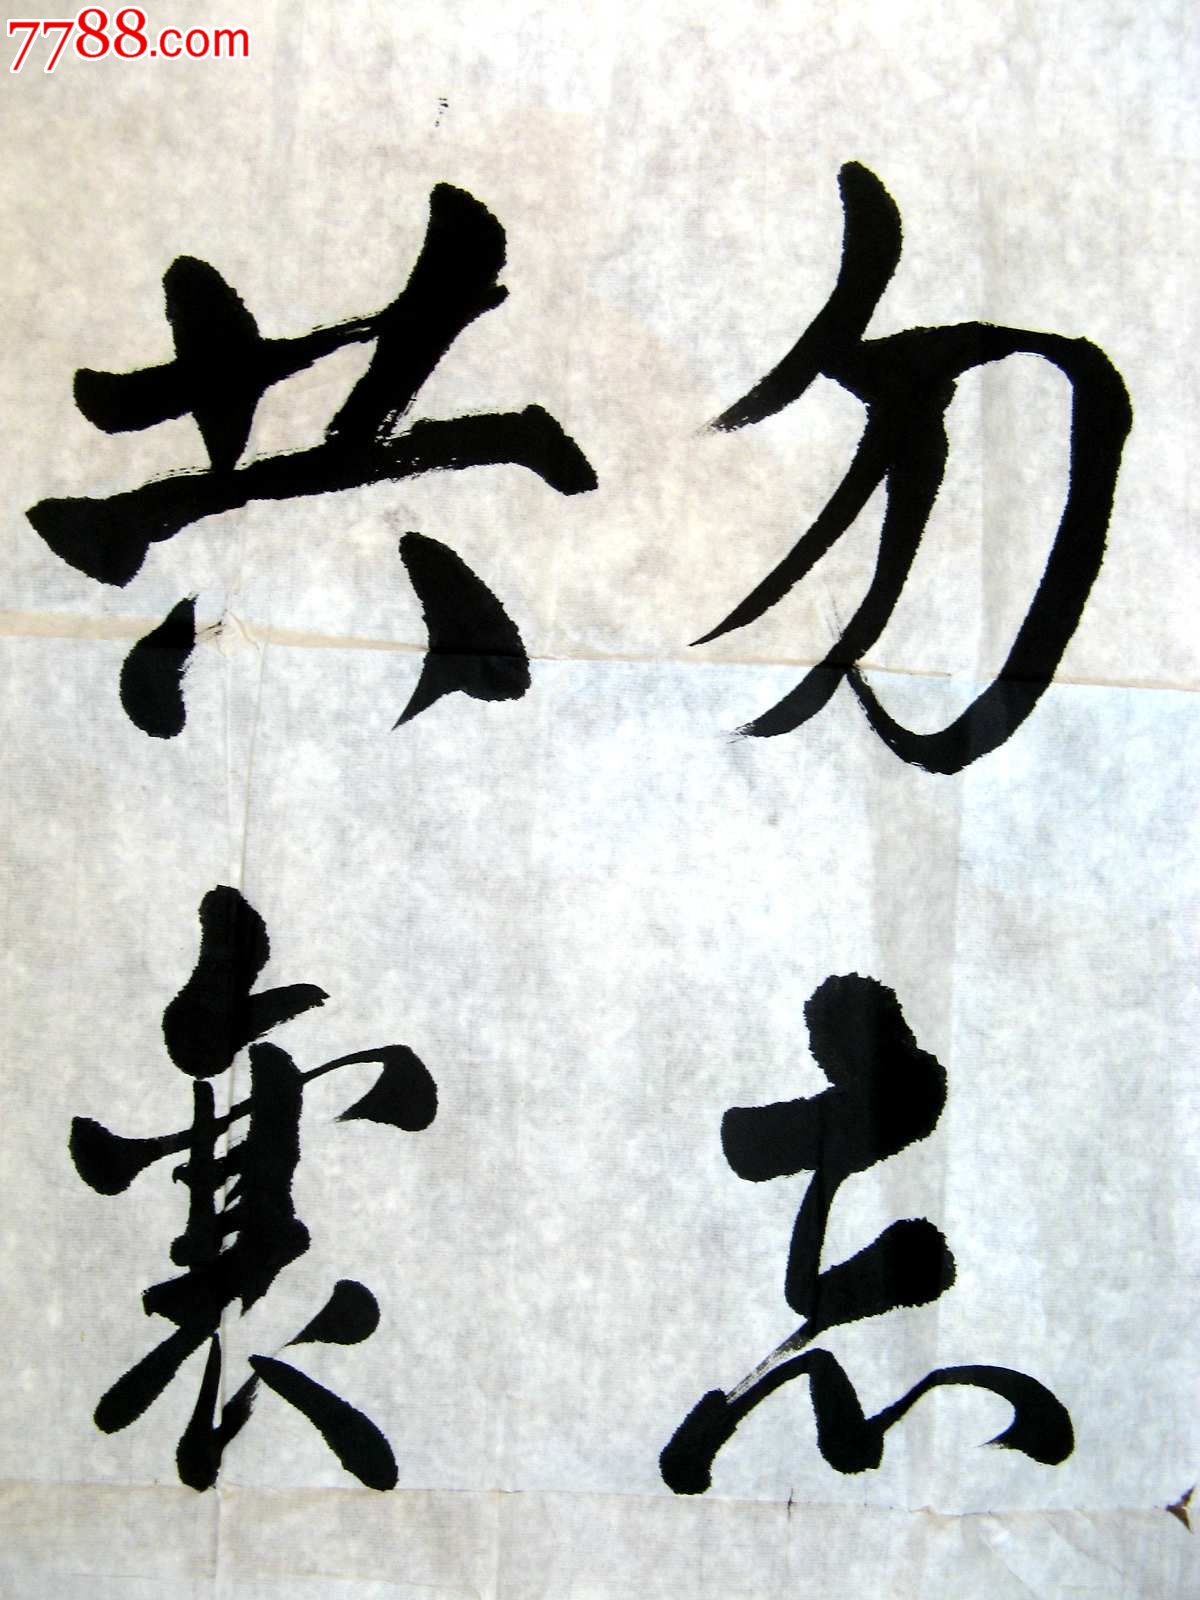 7788.com
勿忘
共襄